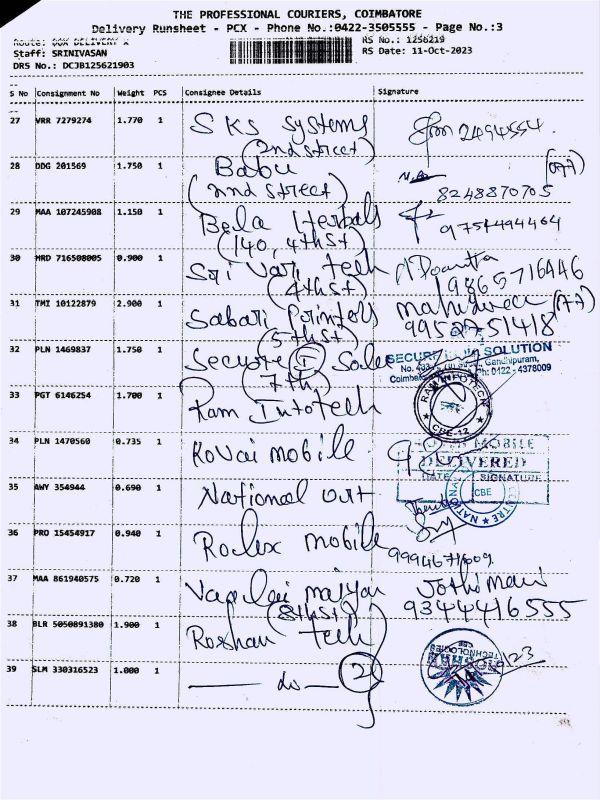 THE PROFESSIONAL COURIERS, COIMBATORE
Delivery Runsheet - PCX - Phone No.:0422-3505555 - Page No.:3
Route: COX DELIVERY X RS No.: 1256219
Staff: SRINIVASAN RS Date: 11-Oct-2023
DRS No.: DCJB125621903
S No Consignment No Weight PCS Consignee Details Signature
27 VRR 7279274 1.770 1 SKS Systems 2494554
(2nd street)
28 DDG 201569 1.750 1 Babu
(2nd street) 8248870705
29 MAA 107245908 1.150 1 Bela Herbals
(140, 4th st) 9754494464
30 HRD 716508005 0.900 1 Sri Vari tech
(4th st) 9865716446
31 TMI 10122879 2.900 1 Sabari Printers
(5th st) 9952751418
32 PLN 1469837 1.750 1 Secure IT Solu SOLUTION
(7th) Gandhipuram,
Coimbatore Ph: 0422 - 4378009
33 PGT 6146254 1.700 1 Ram Infotech RAM INFOTECH
CBE-12
34 PLN 1470560 0.735 1 Kovai mobile MOBILE
DELIVERED
DATE SIGNATURE
35 AWY 354944 0.690 1 National art CBE
36 PRO 15454917 0.940 1 Rolex mobile
9994671609
37 MAA 861940575 0.720 1 Jothimani
(8th st) 9344416555
38 BLR 5050891380 1.900 1 Roshan tech
TECHNOLOGIES
39 SLM 330316523 1.000 1 do 2